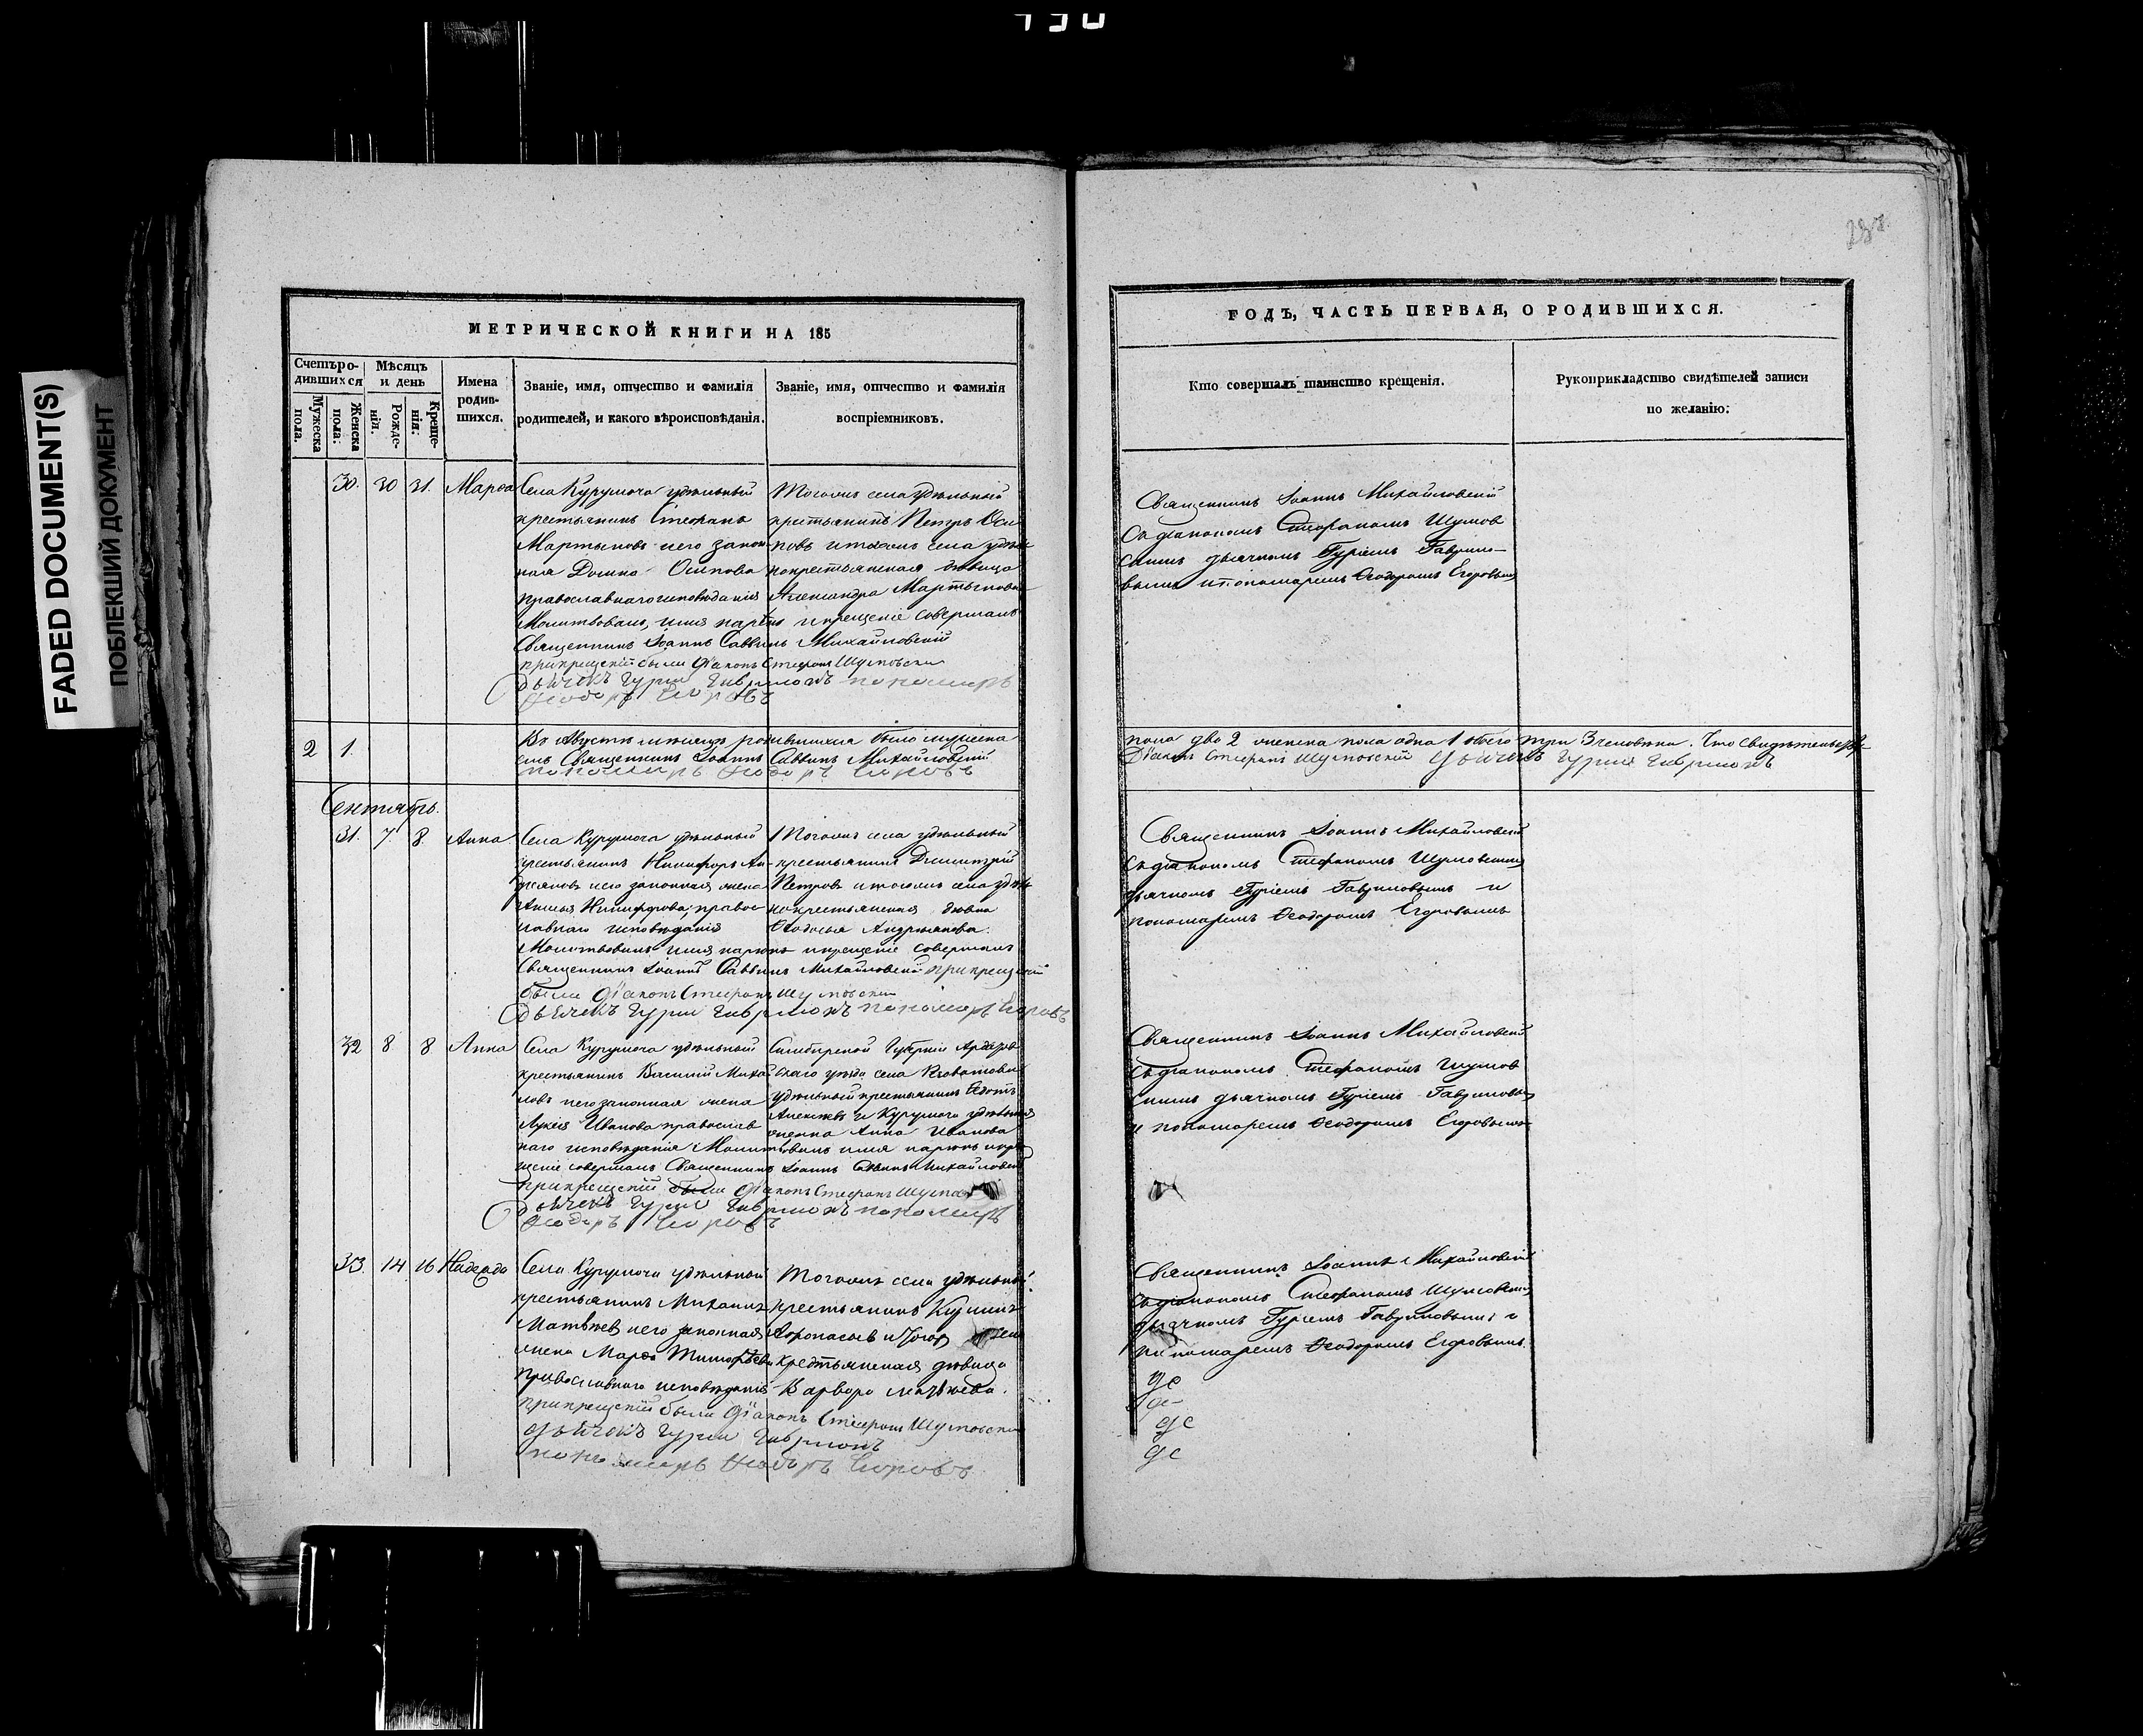 FADED DOCUMENT(S)
ПОБЛЕКШИЙ ДОКУМЕНТ
МЕТРИЧЕСКОЙ КНИГИ НА 185
Счетъ ро-
дившихся
Мужеска
пола.
Женска
пола.
Мѣсяцъ
и день
Рожде-
нія.
Креще-
нія.
Имена
родив-
шихся.
Званіе, имя, отчество и фамилія
родителей, и какого вѣроисповѣданія.
Званіе, имя, отчество и фамилія
воспріемниковъ.
30. 30 31. Марѳа
Села Курумоча удѣльный
крестьянинъ Стефанъ
Мартыновъ и его закон-
ная Домна Осипова
православнаго исповѣданія
Тогожъ села удѣльный
крестьянинъ Петръ Оси
повъ и тогожъ села удѣль
нокрестьянская дѣвица
Александра Мартынова
Молитвовалъ, имя нарекъ и крещеніе совершалъ
Священникъ Іоаннъ Саввинъ Михайловскій
при крещеніи были діаконъ Стефанъ Шумовскій
дьячекъ Гурій Гавриловъ пономарь
Ѳеодоръ Егоровъ
2 1.
Въ Августѣ мѣсяцѣ родившихся было мужеска
емъ Священникъ Іоаннъ Саввинъ Михайловскій
пономарь Ѳеодоръ Егоровъ
Сентябрь.
31. 7. 8. Анна
Села Курумоча удѣльный
крестьянинъ Никифоръ Ан-
дреяновъ и его законная жена
Никифорова, правос-
лавнаго исповѣданія
Тогожъ села удѣльный
крестьянинъ Димитрій
Петровъ и тогожъ села удѣль
нокрестьянская дѣвка
Ѳедосья Андреянова.
Молитвовалъ имя нарекъ и крещеніе совершалъ
Священникъ Іоаннъ Саввинъ Михайловскій при крещеніи
были діаконъ Стефанъ Шумовскій
дьячекъ Гурій Гавриловъ пономарь Егоровъ
32 8 8 Анна
Села Курумоча удѣльный
крестьянинъ Василій Михай
ловъ и его законная жена
Лукія Иванова православ
наго исповѣданія
Симбирской Губерніи Ардатов
скаго уѣзда села
удѣльный крестьянинъ Ѳедотъ
Алексѣевъ и Курумоча удѣльная
женка Анна Иванова
Молитвовалъ имя нарекъ и кре
щеніе совершалъ Священникъ Іоаннъ Саввинъ Михайловскій
при крещеніи были діаконъ Стефанъ
дьячекъ Гурій Гавриловъ пономарь
Ѳеодоръ Егоровъ
33. 14. 16 Надежда
Села Курумоча удѣльный
крестьянинъ Михаилъ
Матвѣевъ и его законная
жена Марѳа Тимофѣева
православнаго исповѣданія
Тогожъ села удѣльный
крестьянинъ Кузьма
крестьянская дѣвица
Варвара Матвѣева.
при крещеніи были діаконъ Стефанъ Шумовскій
дьячекъ Гурій Гавриловъ
пономарь Ѳеодоръ Егоровъ
ГОДЪ, ЧАСТЬ ПЕРВАЯ, О РОДИВШИХСЯ.
Кто совершалъ таинство крещенія.
Рукоприкладство свидѣтелей записи
по желанію:
Священникъ Іоаннъ Михайловскій
съ діакономъ Стефаномъ Шумов
скимъ дьячкомъ Гуріемъ Гаврило-
вымъ и пономаремъ Ѳеодоромъ Егоровымъ
пола два 2 женска пола одна 1 обоего три 3 человѣка. Что свидѣтельству-
Діаконъ Стефанъ Шумовскій Дьячекъ Гурій Гавриловъ
Священникъ Іоаннъ Михайловскій
съ діакономъ Стефаномъ Шумовскимъ
дьячкомъ Гуріемъ Гавриловымъ и
пономаремъ Ѳеодоромъ Егоровымъ
Священникъ Іоаннъ Михайловскій
съ діакономъ Стефаномъ Шумов
скимъ дьячкомъ Гуріемъ Гавриловымъ
и пономаремъ Ѳеодоромъ Егоровымъ
Священникъ Іоаннъ Михайловскій
съ діакономъ Стефаномъ Шумовскимъ
дьячкомъ Гуріемъ Гавриловымъ и
пономаремъ Ѳеодоромъ Егоровымъ.